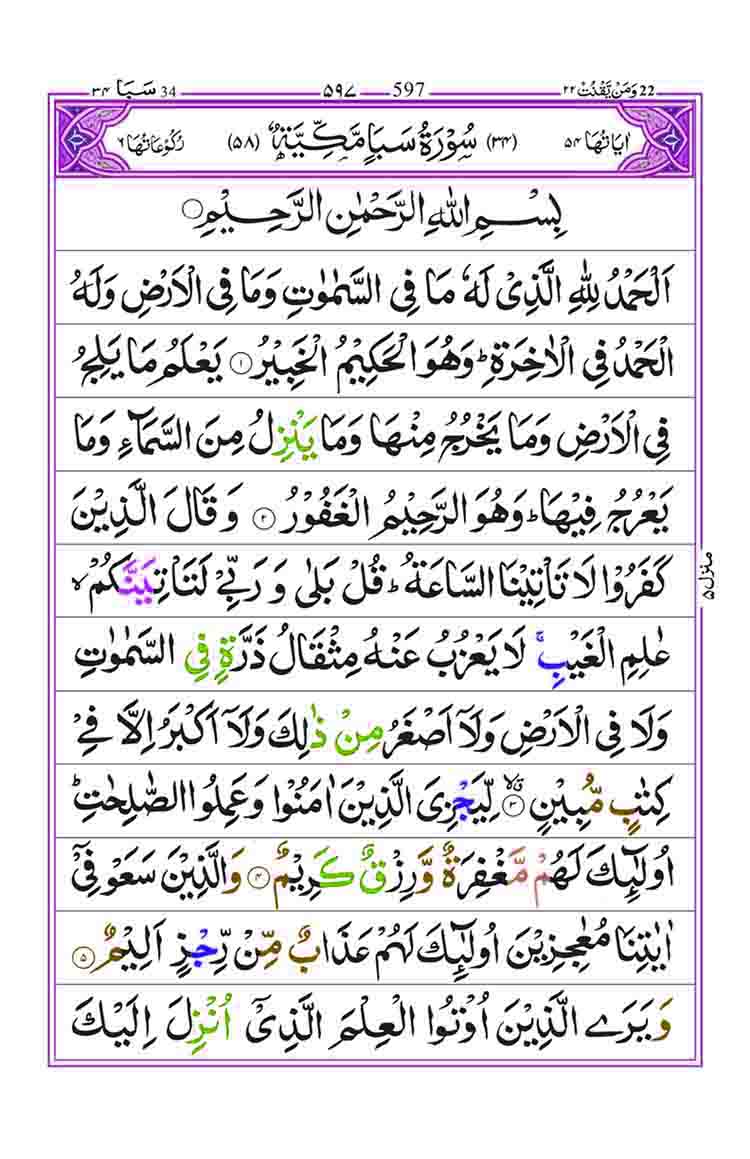 22 وَمَنْ يَّقْنُتْ ٢٢ 597 ٥٩٧ 34 سَبَا ٣٤
اٰيَاتُهَا ٥٤ (٣٤) سُوْرَةُ سَبَاٍ مَّكِّيَّةٌ (٥٨) رُكُوْعَاتُهَا ٦
بِسْمِ اللّٰهِ الرَّحْمٰنِ الرَّحِيْمِ
اَلْحَمْدُ لِلّٰهِ الَّذِىْ لَهٗ مَا فِى السَّمٰوٰتِ وَمَا فِى الْاَرْضِ وَلَهُ
الْحَمْدُ فِى الْاٰخِرَةِ ؕ وَهُوَ الْحَكِيْمُ الْخَبِيْرُ ۝١ يَعْلَمُ مَا يَلِجُ
فِى الْاَرْضِ وَمَا يَخْرُجُ مِنْهَا وَمَا يَنْزِلُ مِنَ السَّمَآءِ وَمَا
يَعْرُجُ فِيْهَا ؕ وَهُوَ الرَّحِيْمُ الْغَفُوْرُ ۝٢ وَقَالَ الَّذِيْنَ
كَفَرُوْا لَا تَاْتِيْنَا السَّاعَةُ ؕ قُلْ بَلٰى وَرَبِّىْ لَتَاْتِيَنَّكُمْ ۙ
عٰلِمِ الْغَيْبِ ۚ لَا يَعْزُبُ عَنْهُ مِثْقَالُ ذَرَّةٍ فِى السَّمٰوٰتِ
وَلَا فِى الْاَرْضِ وَلَاۤ اَصْغَرُ مِنْ ذٰلِكَ وَلَاۤ اَكْبَرُ اِلَّا فِىْ
كِتٰبٍ مُّبِيْنٍ ۝٣ ۙۗ لِّيَجْزِىَ الَّذِيْنَ اٰمَنُوْا وَعَمِلُوا الصّٰلِحٰتِ ؕ
اُولٰٓئِكَ لَهُمْ مَّغْفِرَةٌ وَّرِزْقٌ كَرِيْمٌ ۝٤ وَالَّذِيْنَ سَعَوْ فِىْۤ
اٰيٰتِنَا مُعٰجِزِيْنَ اُولٰٓئِكَ لَهُمْ عَذَابٌ مِّنْ رِّجْزٍ اَلِيْمٌ ۝٥
وَيَرَى الَّذِيْنَ اُوْتُوا الْعِلْمَ الَّذِىْۤ اُنْزِلَ اِلَيْكَ
منزل ٥